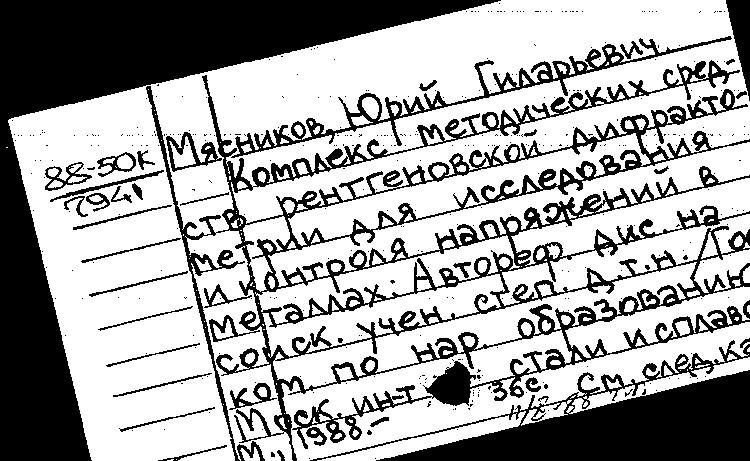 88-50к
7941
Мясников, Юрий Гиларьевич.
Комплекс методических сред-
ств рентгеновской дифракто-
метрии для исследования
и контроля напряжений в
металлах: Автореф. дис. на
соиск. учен. степ. д.т.н. /Гос
ком. по нар. образованию
Моск. ин-т стали и сплаво
М., 1988.- 36с. См. след. ка